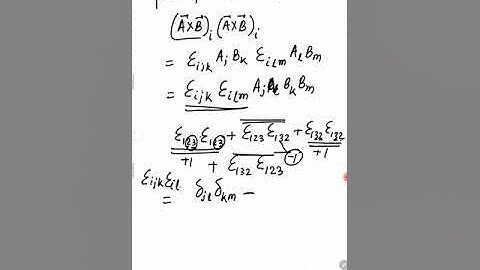 (A⃗×B⃗)ᵢ (A⃗×B⃗)ᵢ
= εᵢⱼₖ Aⱼ Bₖ εᵢₗₘ Aₗ Bₘ
= εᵢⱼₖ εᵢₗₘ Aⱼ Aₗ Bₖ Bₘ
ε₁₂₃ ε₁₂₃ + ε₁₂₃ ε₁₃₂ + ε₁₃₂ ε₁₃₂
+1 + ε₁₃₂ ε₁₂₃ -1 +1
εᵢⱼₖ εᵢₗ
= δⱼₗ δₖₘ −